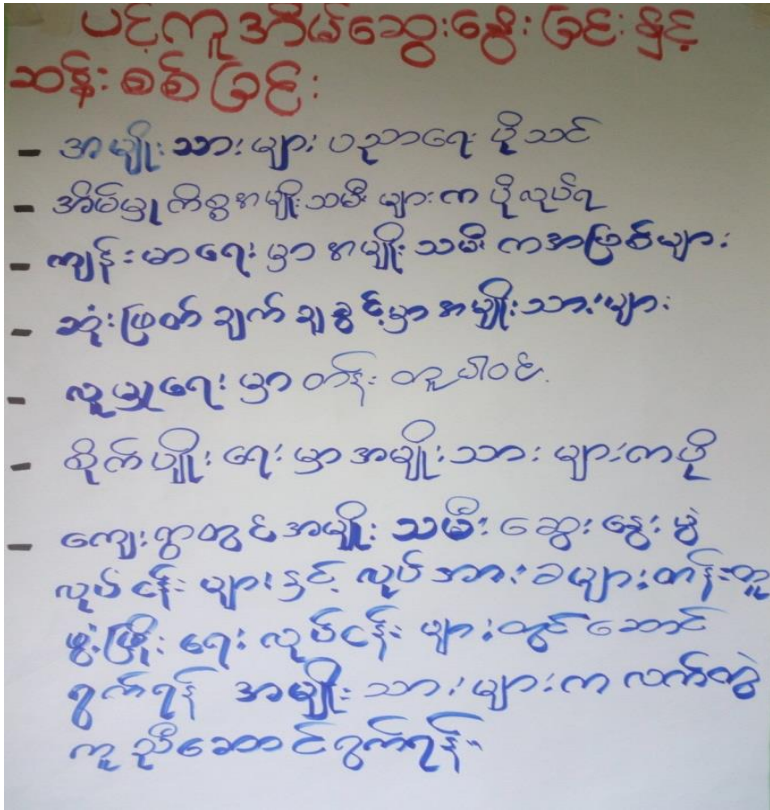 ပင့်ကူအိမ်ဆွေးနွေးခြင်းနှင့်
ဆန်းစစ်ခြင်း
- အမျိုးသားများ ပညာရေး ပိုသင်
- အိမ်မှုကိစ္စအမျိုးသမီးများက ပိုလုပ်ရ
- ကျန်းမာရေးမှာ အမျိုးသမီးကအဖြစ်များ
- ဆုံးဖြတ်ချက်ချခွင့်မှာ အမျိုးသားများ
- လူမှုရေးမှာ တန်းတူပါဝင်
- စိုက်ပျိုးရေးမှာ အမျိုးသားများကပို
- ကျေးရွာတွင် အမျိုးသမီးဆွေးနွေးပွဲ
လုပ်ငန်းများနှင့် လုပ်အားခများတန်းတူ
ဖွံ့ဖြိုးရေးလုပ်ငန်းများတွင် ဆောင်
ရွက်ရန် အမျိုးသားများက လက်တွဲ
ကူညီဆောင်ရွက်ရန်။